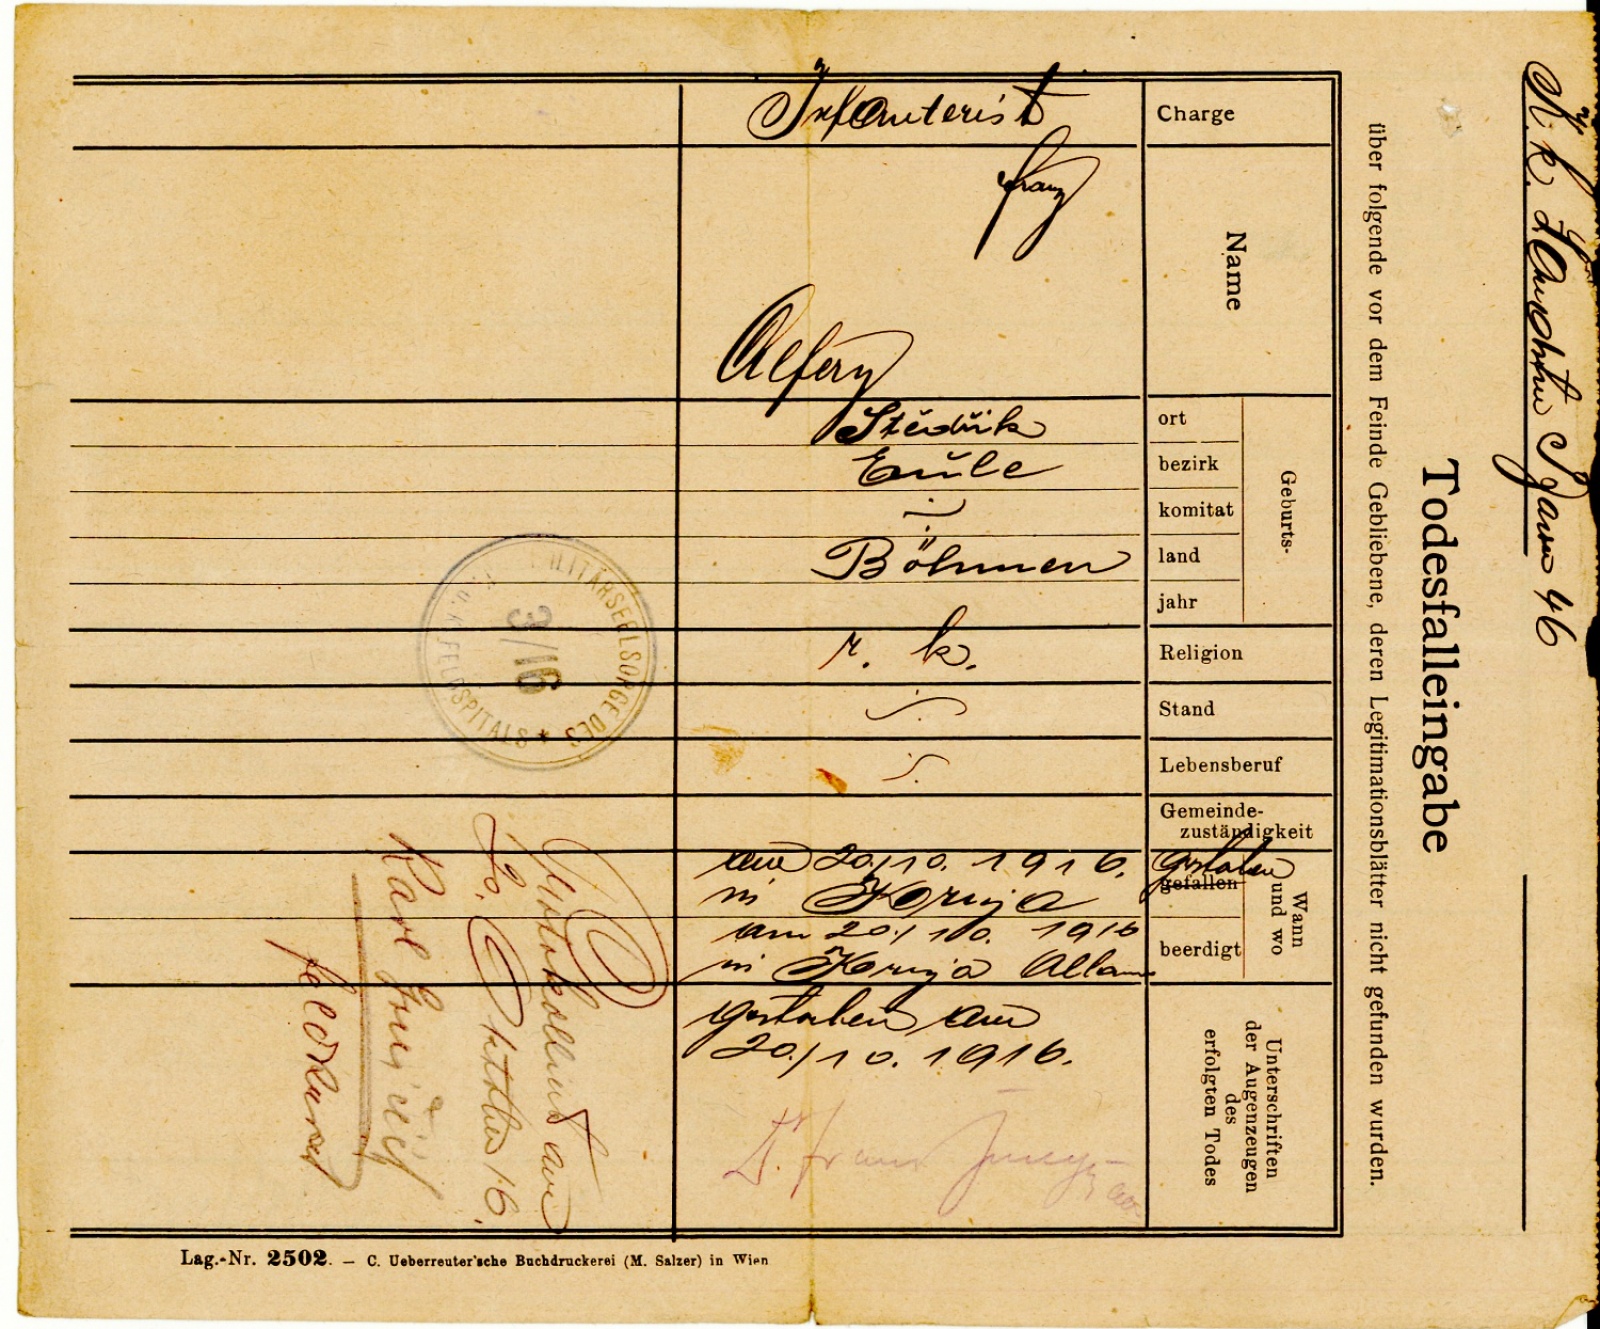 K. k. 46
Todesfalleingabe
über folgende vor dem Feinde Gebliebene, deren Legitimationsblätter nicht gefunden wurden.
Charge
Infanterist
Name
Franz
Alfery
Geburts-
ort
bezirk
Eule
komitat
land
Böhmen
jahr
Religion
r. k.
Stand
Lebensberuf
Gemeinde-
zuständigkeit
Wann
und wo
gefallen
gestorben
am 20./10. 1916.
in Koruja
beerdigt
am 20./10. 1916
in Koruja
Unterschriften
der Augenzeugen
des
erfolgten Todes
gestorben am
20./10. 1916.
Dr. Franz
MILITÄRSEELSORGE DES
K.u.K. FELDSPITALS ★
3/16
16.
Karl
Feldkurat
Lag.-Nr. 2502. — C. Ueberreuter'sche Buchdruckerei (M. Salzer) in Wien